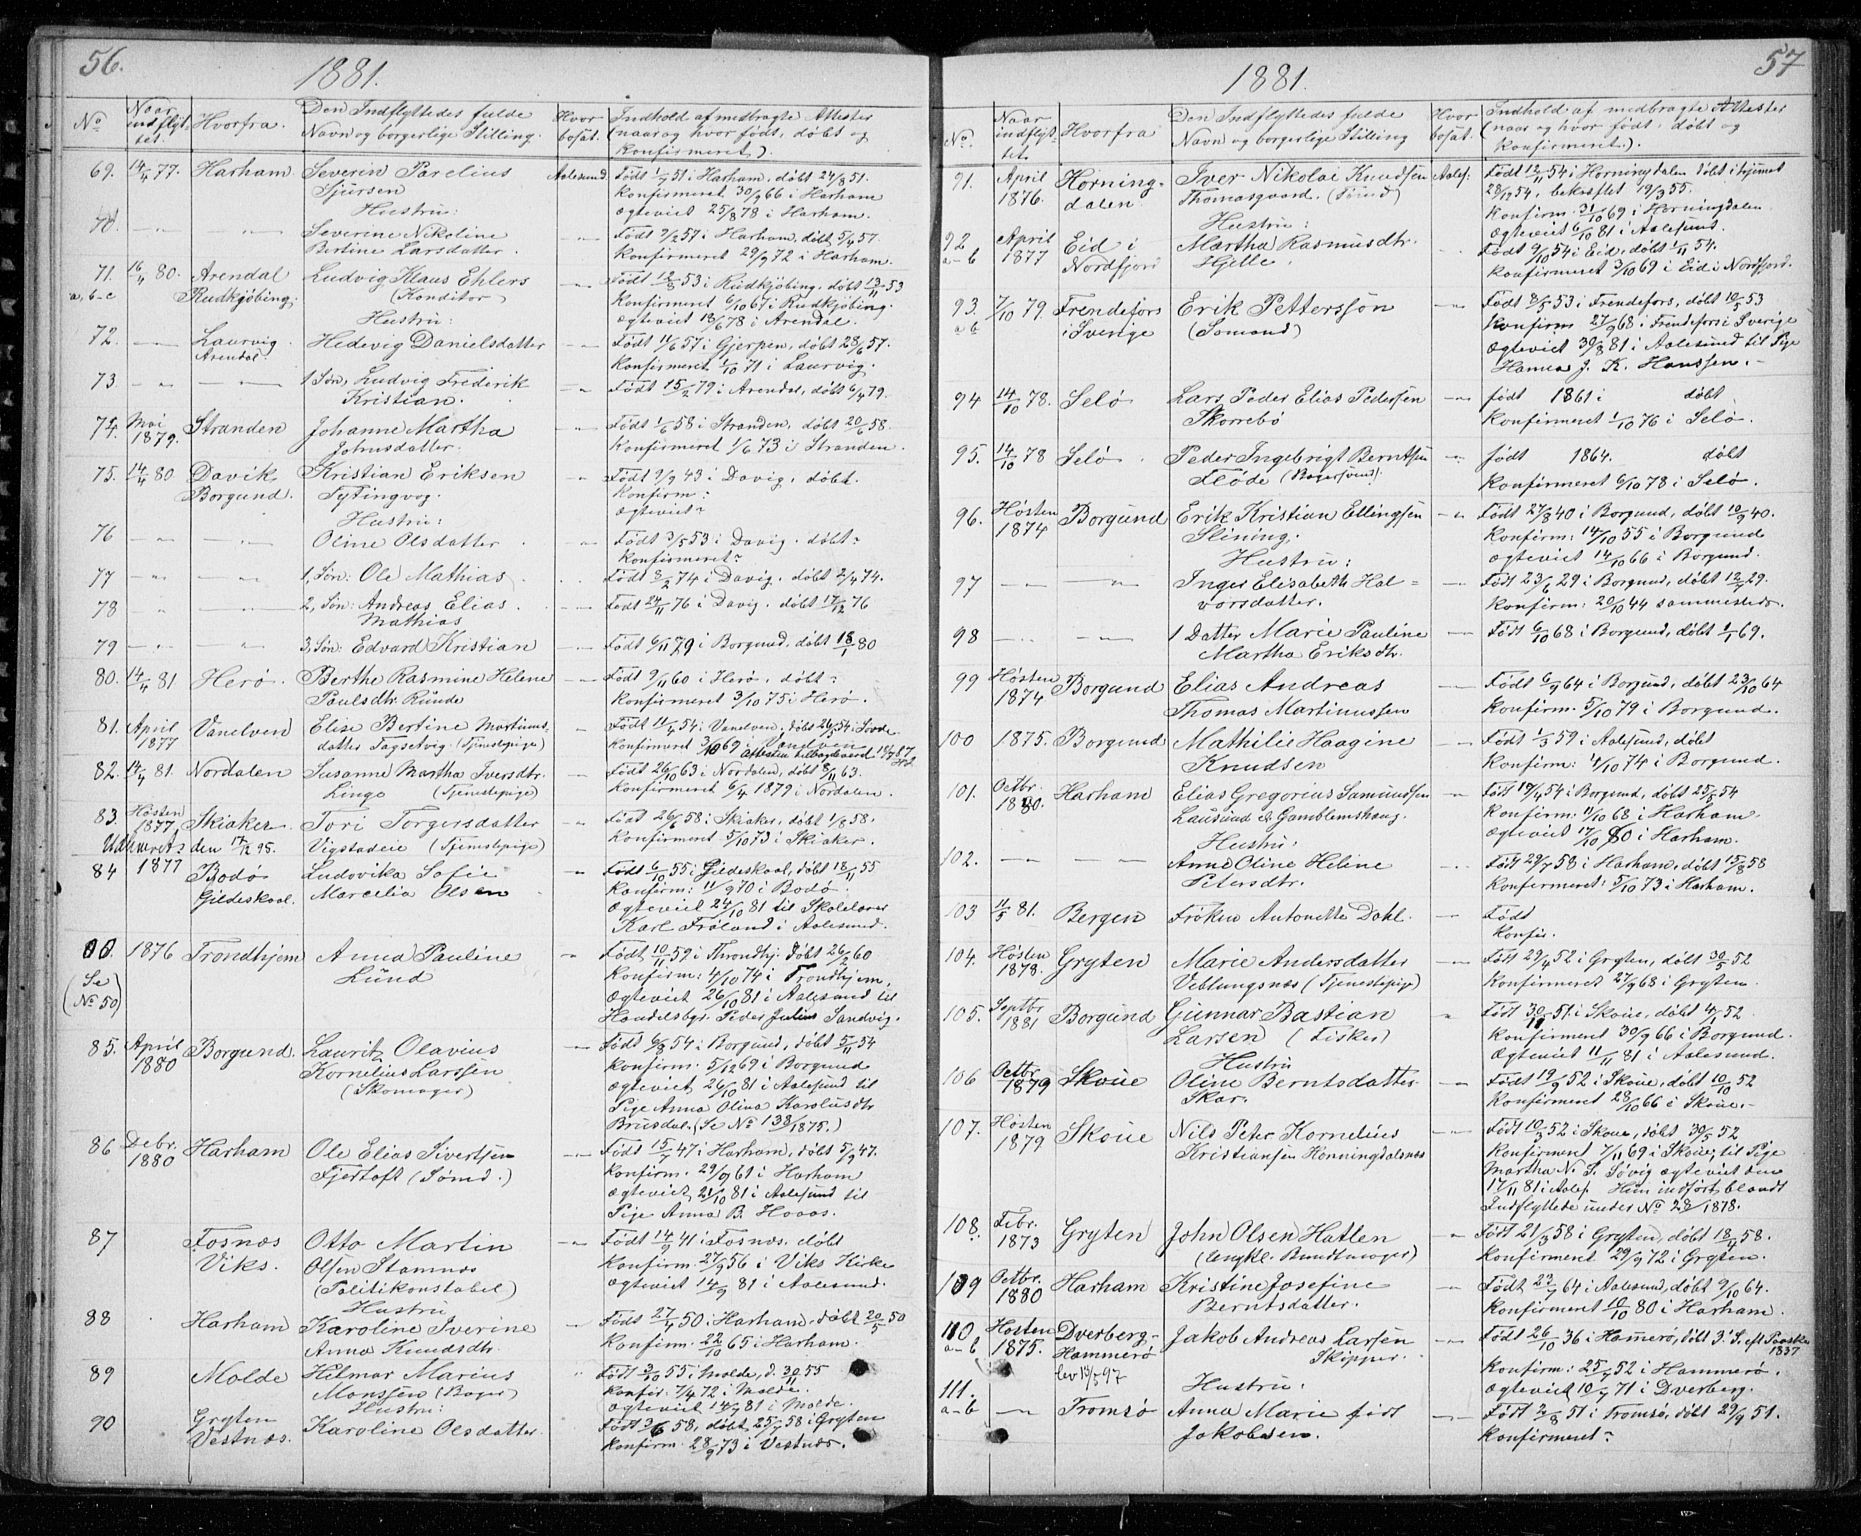 56.
1881.
No
Naar indflyttet.
Hvorfra.
Den Indflyttedes fulde Navn og borgerlige Stilling.
Hvor bosat.
Indhold af medbragte Attester (naar og hvor født, døbt og konfirmeret).
69. 14/4 77. Harham Severin Parelius Aalesund Født 1/7 51 i Harham, døbt 24/8 51.
Sjursen konfirmeret 30/9 66 i Harham
Hustru: ægteviet 25/8 78 i Harham.
70. Severine Nikoline Født 9/2 57 i Harham, døbt 5/4 57.
Bertine Larsdatter. konfirmeret 29/9 72 i Harham.
71. 16/4 80. Arendal Ludvig Klaus Ehlers Født 12/8 53 i Rudkjøbing, døbt 13/11 53
a, b-c Rudkjøbing. (Konditor) konfirmeret 6/10 67 i Rudkjøbing
Hustru: ægteviet 18/6 78 i Arendal.
72. Laurvig Hedevig Danielsdatter Født 11/6 57 i Gjerpen, døbt 28/6 57.
Arendal konfirmeret 1/10 71 i Laurvig.
73 1 Søn, Ludvig Frederik Født 15/2 79 i Arendal, døbt 6/4 79.
Kristian.
74. Mai Stranden Johanne Martha Født 1/6 58 i Stranden, døbt 20/6 58.
1879. Johnsdatter. konfirmeret 1/6 73 i Stranden.
75. 14/4 80 Davik Kristian Eriksen Født 9/9 43 i Davig, døbt.
Borgund. Tytingvog. konfirm:
Hustru: ægteviet
76 Oline Olsdatter Født 3/5 53 i Davig. døbt
konfirmeret
77 1, Søn: Ole Mathias Født 8/2 74 i Davig. døbt 2/4 74.
78 2, Søn: Andreas Elias Født 24/11 76 i Davig. døbt 17/12 76
Mathias
79 3, Søn: Edvard Kristian Født 6/11 79 i Borgund, døbt 18/1 80
80. 14/4 81 Herø Berthe Rasmine Helene Født 9/4 60 i Herø, døbt
Paulsdtr Runde konfirmeret 3/10 75 i Herø.
81. April Vanelven Elise Bertine Martinus- Født 11/4 54 i Vanelven, døbt 26/5 54 i Sorde
1877 datter Sagsetvig (Tjenestepige) konfirmeret 3/10 69 i Vanelven
82. 14/4 81. Nordalen Susanne Martha Iversdtr. Født 26/10 63 i Nordalen, døbt 8/11 63.
Linge (Tjenestepige) konfirmeret 6/4 1879 i Nordalen.
83. Høsten 1877 Skiaker Tori Torgersdatter Født 26/6 58 i Skiaker, døbt 1/8 58.
den 17/12 95. Vigstadeie (Tjenestepige) konfirmeret 5/10 73 i Skiaker.
84 1877 Bodø Ludovika Sofie Født 6/10 55 i Gildeskaal, døbt 18/11 55
Gildeskaal. Marcelia Olsen konfirm: 11/9 70 i Bodø.
ægteviet 24/10 81 til Skolelærer
Karl Frøland i Aalesund.
1876 Trondhjem Anna Pauline Født 10/11 59 i Throndhj. døbt 26/2 60
(Se No 50) Lund konfirm: 4/10 74 i Trondhjem,
ægteviet 26/10 81 i Aalesund til
Handelsbgr. Peder Julius Sandvig.
85. April Borgund. Lauritz Olavius Født 6/8 54 i Borgund, døbt 5/11 54
1880 Kornelius Larssen konfirm. 5/12 69 i Borgund
(Skomager) ægteviet 26/10 81 i Aalesund til
Pige Anna Olina Karolusdtr
Brusdal. (Se No 138/1875.)
86 Debr. Harham Ole Elias Sivertsen Født 15/7 47 i Harham, døbt 5/9 47.
1880 Fjertoft (Sømd.) konfirm. 29/9 61 i Harham
ægteviet 23/10 81 i Aalesund til
Pige Anna B. Hovos.
87 Fosnæs Otto Martin Født 14/9 41 i Fosnæs. døbt
Viks. Olsen Stamnæs konfirm. 27/9 56 i Viks Kirke
(Politikonstabel) ægteviet 14/9 81 i Aalesund.
Hustru
88 Harham Karoline Iverine Født 27/4 50 i Harham, døbt 20/5 50
Anna Knudsdtr. konfirm. 22/10 65 i Harham.
89 Molde Hilmar Marius Født 3/10 55 i Molde, d. 30/11 55
Monssen (Bager) konfir: 7/4 72 i Molde.
Hustru: ægteviet 14/9 81 i Molde.
90 Gryten Karoline Olsdatter. Født 3/6 58, døbt 25/7 58 i Gryten
Vestnæs. konfirm. 28/9 73 i Vestnæs.
57
1881.
No.
Naar indflyttet
Hvorfra
Den Indflyttedes fulde Navn og borgerlige Stilling
Hvor bosat.
Indhold af medbragte Attester (naar og hvor født, døbt og konfirmeret.).
91. April Horning- Iver Nikolai Knudsen Aales. Født 12/11 54 i Horningdalen døbt i hjemmet
1876. dalen Thomasgaard. (Sømd) 28/12 54, bekræftet 19/3 55.
Hustru: konfirm. 31/10 69 i Horningdalen
ægteviet 6/10 81 i Aalesund.
92 April Eid i Martha Rasmusdtr. Født 9/10 54 i Eid, døbt 1/11 54.
a-b 1877 Nordfjord Hjelle. konfirmeret 3/10 69 i Eid i Nordfjord.
93. 7/10 79 Frendefors Erik Pettersson Født 8/5 53 i Frendefors, døbt 10/5 53
a b i Sverige (Sømand) konfirm 27/9 68 i Frendefors i Sverige
ægteviet 30/8 81 i Aalesund til Pige
Hanna J. K. Hanssen.
94 14/10 78. Selø. Lars Peder Elias Pedersen født 1861 i døbt
Skorrebø konfirmeret 1/10 76 i Selø.
95. 14/10 78 Selø. Peder Ingebrigt Berntsen født 1864. døbt
Fløde (Bagersvend) konfirmeret 6/10 78 i Selø.
96. Høsten Borgund Erik Kristian Ellingsen Født 27/8 40 i Borgund, døbt 10/9 40.
1874 Slining. konfirm: 14/10 55 i Borgund
Hustru: ægteviet 14/10 66 i Borgund.
97 Inger Elisabeth Hal- Født 23/6 29 i Borgund, døbt 12/7 29.
vorsdatter. konfirm: 20/10 44 sammesteds.
98 1 Datter Marie Pauline Født 6/10 68 i Borgund, døbt 1/1 69.
Martha Eriksdtr.
99 Høsten Borgund Elias Andreas Født 6/9 64 i Borgund, døbt 23/10 64
1874 Thomas Martinussen konfirm. 5/10 79 i Borgund.
100 1875. Borgund Mathilie Haagine Født 1/3 59 i Aalesund, døbt
Knudsen konfirm: 4/10 74 i Borgund.
101. Octbr. Harham Elias Gregorius Samundsen Født 17/4 54 i Borgund, døbt 25/5 54
1880. Lausund Gamblemshaug. konfirm: 11/10 68 i Harham
Hustru: ægteviet 17/10 80 i Harham.
102. Anne Oline Helene Født 29/7 58 i Harham, døbt 15/8 58
Petersdtr. konfirmeret: 5/10 73 i Harham.
103 11/5 81. Bergen Frøken Antonette Dahl. Født
konfir.
104. Høsten Gryten Marie Andersdatter Født 29/4 52 i Gryten, døbt 30/5 52
1878. Veblungsnæs (Tjenestepige) konfirmeret 27/9 68 i Gryten.
105. Septbr Borgund Gunnar Bastian Født 30/11 51 i Skoue, døbt 4/1 52.
1881 Larsen (Fisker) konfirmeret 30/9 66 i Borgund.
Hustru ægteviet 11/11 81 i Aalesund.
106 Octbr. Skoue Oline Berntsdatter Født 19/9 52 i Skoue, døbt 10/10 52
1879 Skar. konfirmeret 28/10 66 i Skoue.
107. Høsten Skoue Nils Peter Kornelius Født 10/3 52 i Skoue, døbt 30/5 52
1879 Kristiansen Honningdalsnes konfirmeret 7/11 69 i Skoue, til Pige
Martha N. S. Søvig ægteviet den
17/11 81 i Aalesf. Hun indført blandt
Indflyttede under No 28/1878.
108. Febr. Gryten John Olsen Hatlen Født 21/3 58 i Gryten, døbt 18/4 58.
1873 (Buntmager) konfirmeret 29/9 72 i Gryten.
109 Octbr. Harham Kristine Josefine Født 23/7 64 i Aalesund, døbt 9/10 64.
1880 Berntsdatter. konfirmeret 10/10 80 i Harham.
110 Høsten Dverberg- Jakob Andreas Larsen Født 26/10 36 i Hammerø, døbt 3. S. eft Paaske 1837
a-b 1875. Hammerø Skipper. konfirm: 25/7 52 i Hammerø.
lev 13/5 97 Hustru: ægteviet 10/9 71 i Dverberg.
111. Tromsø Anna Marie født Født 2/8 51 i Tromsø, døbt 29/9 51.
a-b Jakobsen. konfirmeret